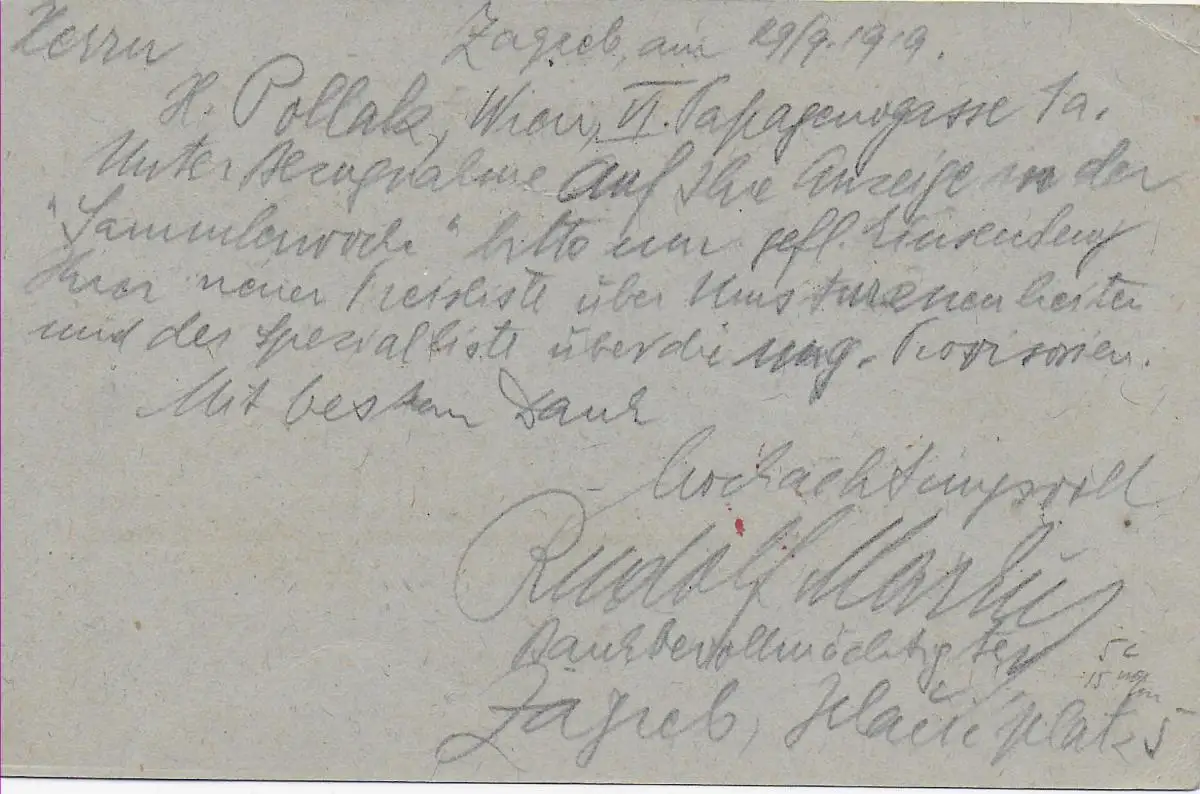 Herrn Zagreb, am 29/9.1919.
H. Pollak, Wien, VI. Papagenogasse 1a.
Unter Bezugnahme auf Ihre Anzeige in der
"Sammlerwoche" bitte um gefl. Einsendung
Ihrer neuen Preisliste über Umsturzneuheiten
und der Spezialliste über die ung. Provisorien.
Mit bestem Dank
hochachtungsvoll
Rudolf
Bankbevollmächtigter
Zagreb, platz 5
5 c
15